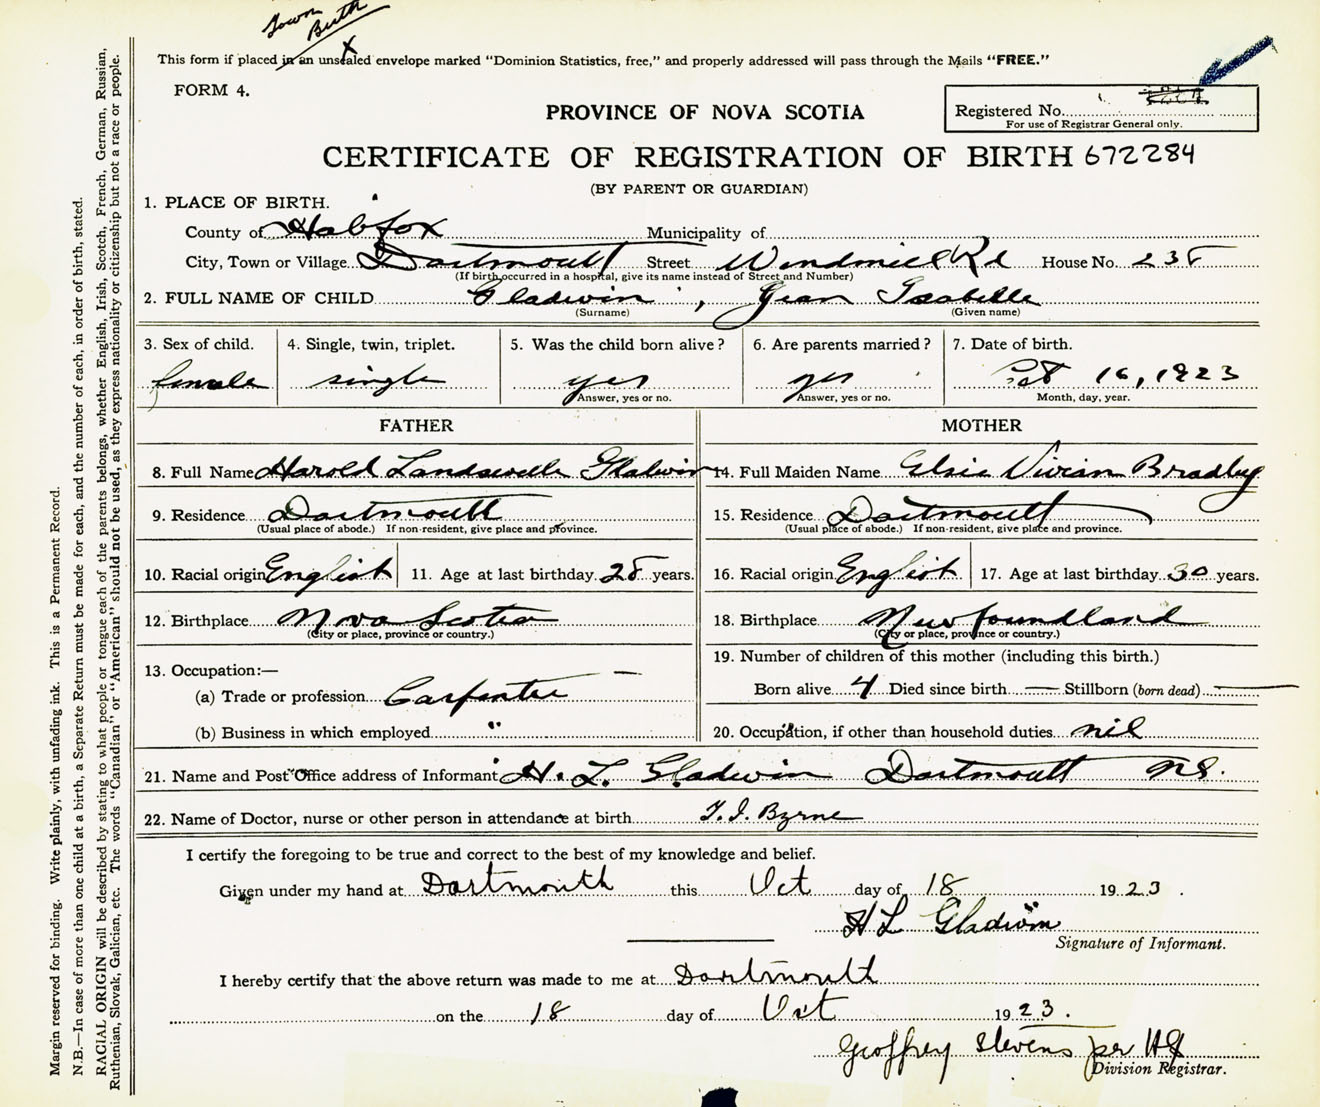 Town
Birth
This form if placed in an unsealed envelope marked "Dominion Statistics, free," and properly addressed will pass through the Mails "FREE."
FORM 4.
PROVINCE OF NOVA SCOTIA
Registered No.
For use of Registrar General only.
CERTIFICATE OF REGISTRATION OF BIRTH 672284
(BY PARENT OR GUARDIAN)
1. PLACE OF BIRTH.
County of Halifax Municipality of
City, Town or Village Dartmouth Street Windmill Rd House No. 238
(If birth occurred in a hospital, give its name instead of Street and Number)
2. FULL NAME OF CHILD Gladwin, Jean Isabelle
(Surname) (Given name)
3. Sex of child. 4. Single, twin, triplet. 5. Was the child born alive? 6. Are parents married? 7. Date of birth.
female single yes yes Oct 16, 1923
Answer, yes or no. Answer, yes or no. Month, day, year.
FATHER MOTHER
8. Full Name Harold Gladwin 14. Full Maiden Name Elsie Vivian Bradbury
9. Residence Dartmouth 15. Residence Dartmouth
(Usual place of abode.) If non-resident, give place and province. (Usual place of abode.) If non-resident, give place and province.
10. Racial origin English 11. Age at last birthday 28 years. 16. Racial origin English 17. Age at last birthday 30 years.
12. Birthplace Nova Scotia 18. Birthplace Newfoundland
(City or place, province or country.) (City or place, province or country.)
13. Occupation:— 19. Number of children of this mother (including this birth.)
(a) Trade or profession Carpenter Born alive 4 Died since birth — Stillborn (born dead) —
(b) Business in which employed " 20. Occupation, if other than household duties nil
21. Name and Post Office address of Informant H. L. Gladwin Dartmouth NS.
22. Name of Doctor, nurse or other person in attendance at birth T. I. Byrne
I certify the foregoing to be true and correct to the best of my knowledge and belief.
Given under my hand at Dartmouth this Oct day of 18 1923.
H L Gladwin
Signature of Informant.
I hereby certify that the above return was made to me at Dartmouth
on the 18 day of Oct 1923.
Geoffrey Stevens per HG
Division Registrar.
Margin reserved for binding. Write plainly, with unfading ink. This is a Permanent Record.
N.B.—In case of more than one child at a birth, a Separate Return must be made for each, and the number of each, in order of birth, stated.
RACIAL ORIGIN will be described by stating to what people or tongue each of the parents belongs, whether English, Irish, Scotch, French, German, Russian,
Ruthenian, Slovak, Galician, etc. The words "Canadian" or "American" should not be used, as they express nationality or citizenship but not a race or people.